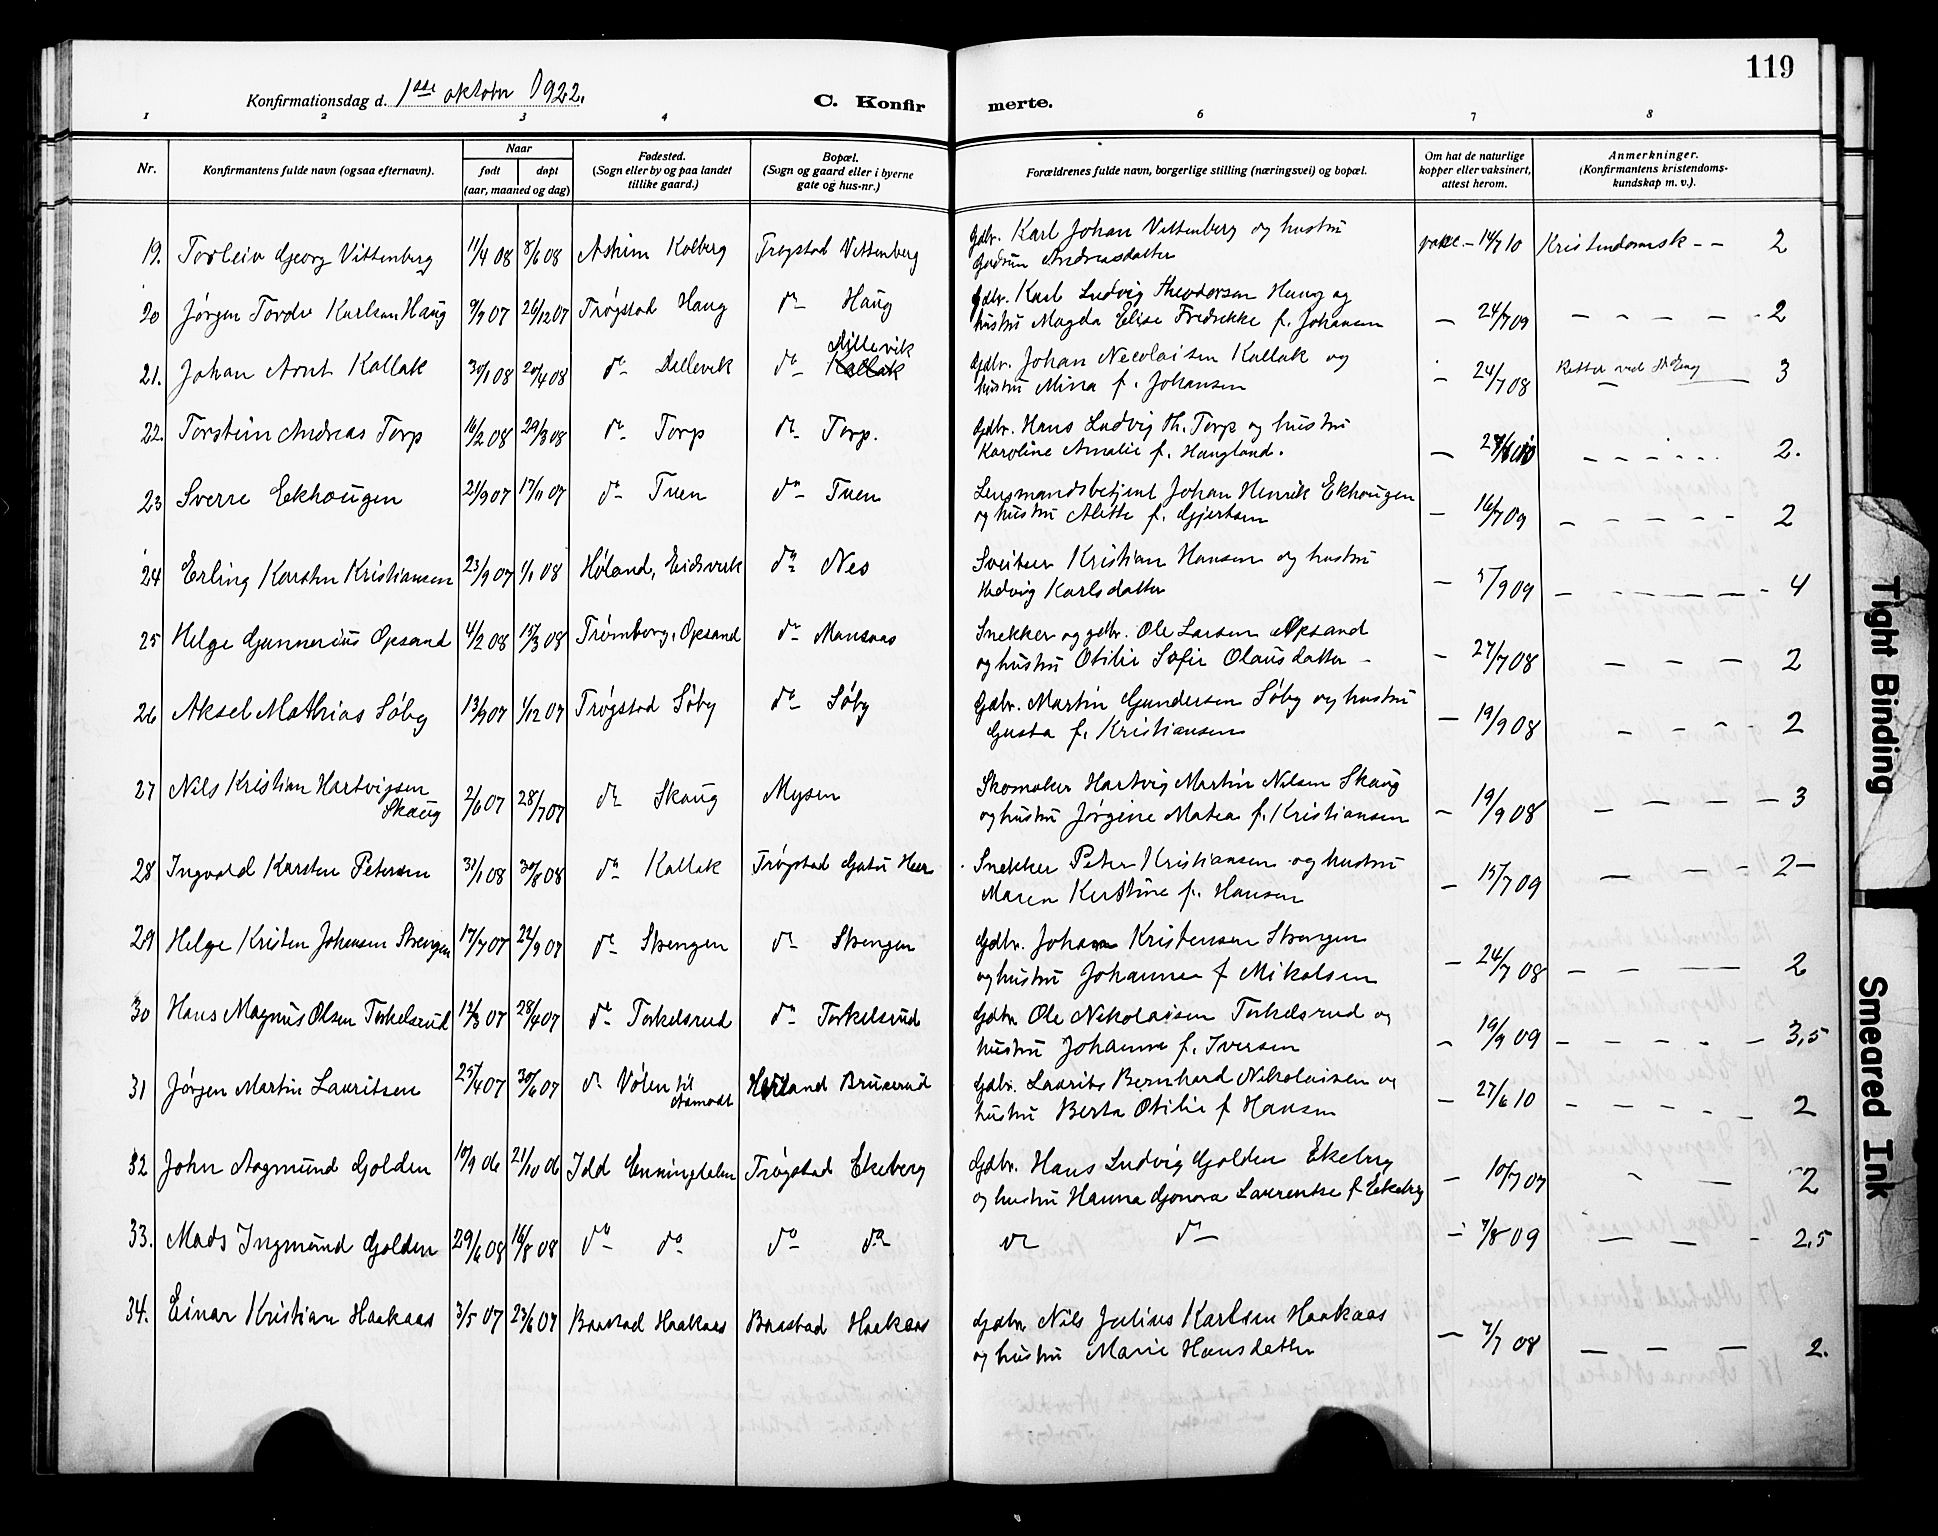 119
Konfirmationsdag d. 1ste oktober 1922.
C. Konfir merte.
1 2 3 4 5 6 7 8
Nr. Konfirmantens fulde navn (ogsaa efternavn). Naar født døpt (aar, maaned og dag) Fødested. (Sogn eller by og paa landet tillike gaard.) Bopæl. (Sogn og gaard eller i byerne gate og hus-nr.) Forældrenes fulde navn, borgerlige stilling (næringsvei) og bopæl. Om hat de naturlige kopper eller vaksinert, attest herom. Anmerkninger. (Konfirmantens kristendoms-kundskap m. v.).
19. Torleiv Georg Vittenberg 11/4 08 8/6 08 Askim Kolberg Trøgstad Vittenberg Gdbr. Karl Johan Vittenberg og hustru
Gudrun Andreasdatter vakc. - 14/7 10 Kristendomsk - - 2
20 Jørgen Tordv Karlsen Haug 9/9 07 26/12 07 Trøgstad Haug do Haug Gdbr. Karl Ludvig Theodorsen Haug og
hustru Magda Elise Fredrikke f. Johansen - 24/7 09 - - - - - 2
21. Johan Arnt Kallak 30/1 08 20/4 08 do Dillevik do Kallak Dillevik Gdbr. Johan Necolaisen Kallak og
hustru Mina f. Johansen - 24/7 08 Rettet ved - 3
22. Torstein Andreas Torp 16/2 08 29/3 08 do Torp do Torp. Gdbr. Hans Ludvig Th. Torp og hustru
Karoline Amalie f. Haugland. - - - - - - 2.
23 Sverre Ekhougen 21/9 07 17/11 07 do Tuen do Tuen Lensmandsbetjent Johan Henrik Ekhougen
og hustru Alette f. Gjertsen - 16/7 09 - - - - - 2
24 Erling Karsten Kristiansen 23/9 07 1/1 08 Høland, Eidsverk do Nes Sveitser Kristian Hansen og hustru
Hedvig Karlsdatter - 5/9 09 - - - - - 4
25 Helge Gunnerius Opsand 4/2 08 15/3 08 Trømborg, Opsand do Mansaas Snekker og gdbr. Ole Larsen Opsand
og hustru Otilie Sofie Olausdatter - - 27/7 08 - - - 2
26 Aksel Mathias Søby 13/9 07 1/12 07 Trøgstad Søby do Søby Gdbr. Martin Gundersen Søby og hustru
Gusta f. Kristiansen - 19/9 08 - - - - 2
27 Nils Kristian Hartvigsen Skaug 2/6 07 28/7 07 do Skaug Mysen Skomaker Hartvig Martin Nilsen Skaug
og hustru Jørgine Matea f. Kristiansen - 19/9 08 - - - - 3
28 Ingvald Karsten Petersen 31/1 08 30/8 08 do Kallak Trøgstad Gatu Heer Snekker Peter Kristiansen og hustru
Maren Kirstine f. Hansen - 15/7 09 - - - 2-
29 Helge Kristen Johansen Strengen 17/7 07 22/9 07 do Strengen do Strengen Gdbr. Johan Kristensen Strengen
og hustru Johanne f Mikalsen - 24/7 08 - - - 2
30 Hans Magnus Olsen Torkelsrud 12/3 07 28/4 07 do Torkelsrud do Torkelsrud Gdbr Ole Nikolaisen Torkelsrud og
hustru Johanne f. Iversen - 19/9 09 - - - - - 3,5
31 Jørgen Martin Lauritsen 25/4 07 30/6 07 do Volen til Aamodt Høland Bruserud Gdbr. Laurits Bernhard Nikolaisen og
hustru Berta Otilie f Hansen - 27/6 10 - - - - - 2
32 John Aagmund Golden 10/9 06 21/10 06 Idd Enningdalen Trøgstad Ekeberg Gdbr. Hans Ludvig Golden Ekeberg
og hustru Hanna Gonora Laurentse f Ekeberg - 10/7 07 - - - 2
33. Mads Ingmund Golden 29/6 08 16/8 08 do do do do do do - 7/8 09 - - - 2,5
34. Einar Kristian Haakaas 3/5 07 23/6 07 Baastad Haakaas Baastad Haakaas Gdbr Nils Julius Karlsen Haakaas
og hustru Marie Hansdatter - 7/7 08 - - - 2.
Tight Binding
Smeared Ink